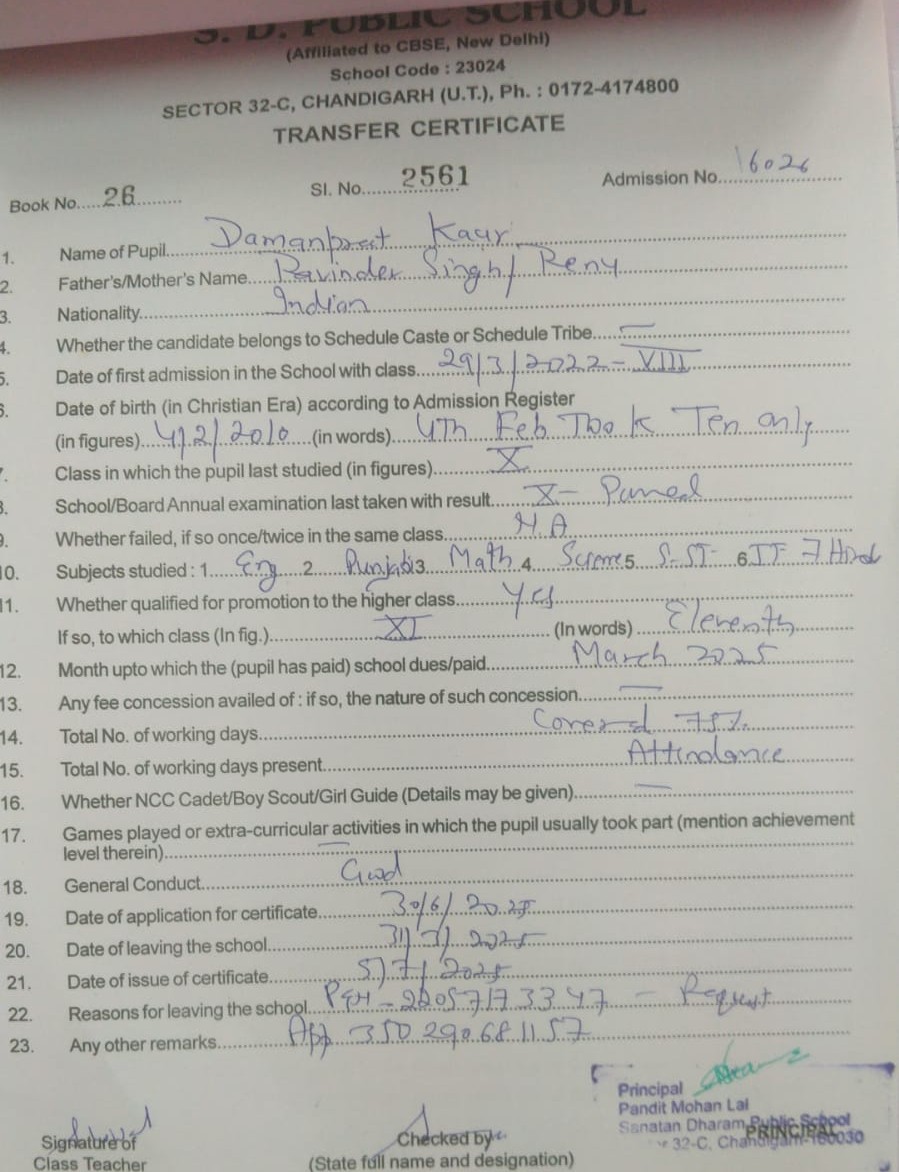 S. D. PUBLIC SCHOOL
(Affiliated to CBSE, New Delhi)
School Code : 23024
SECTOR 32-C, CHANDIGARH (U.T.), Ph. : 0172-4174800
TRANSFER CERTIFICATE
Book No.....26......... Sl. No...... 2561 Admission No. 16026
1. Name of Pupil.... Damanpreet Kaur
2. Father's/Mother's Name.... Ravinder Singh/ Renu
3. Nationality.... Indian
4. Whether the candidate belongs to Schedule Caste or Schedule Tribe.... —
5. Date of first admission in the School with class.... 29/3/2022 - VIII
6. Date of birth (in Christian Era) according to Admission Register
(in figures).... 4/2/2010 (in words).... 4Th Feb Two K Ten only
7. Class in which the pupil last studied (in figures).... X
8. School/Board Annual examination last taken with result.... X-
9. Whether failed, if so once/twice in the same class.... N.A
10. Subjects studied : 1.... Eng 2 Punjabi 3 Math 4 Science 5 S.ST 6 IT 7 Hind
11. Whether qualified for promotion to the higher class.... Yes
If so, to which class (In fig.).... XI (In words).... Eleventh
12. Month upto which the (pupil has paid) school dues/paid.... March 2025
13. Any fee concession availed of : if so, the nature of such concession.... —
14. Total No. of working days.... 75%
15. Total No. of working days present.... Attendance
16. Whether NCC Cadet/Boy Scout/Girl Guide (Details may be given).... —
17. Games played or extra-curricular activities in which the pupil usually took part (mention achievement
level therein).... —
18. General Conduct.... Good
19. Date of application for certificate.... 30/6/2025
20. Date of leaving the school.... 2025
21. Date of issue of certificate.... 5/7/2025
22. Reasons for leaving the school.... - Request
23. Any other remarks.... 350290681157
Principal
Pandit Mohan Lal
Sanatan Dharam Public School
32-C, Chandigarh-160030
PRINCIPAL
Signature of
Class Teacher
Checked by
(State full name and designation)